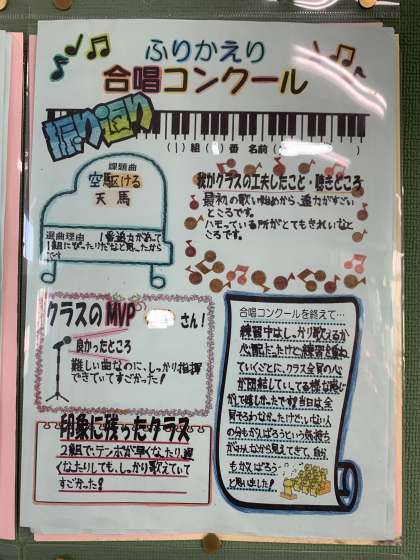 ふりかえり
合唱コンクール
振り返り
(1)組( )番 名前(
課題曲
空駆ける
天馬
選曲理由 1番迫力があって
1組にぴったりだなと思ったから
です
我がクラスの工夫したこと・聴きどころ
最初の歌い始めから、迫力がすごい
ところです。
ハモっている所がとてもきれいなとこ
ろです。
クラスのMVP さん!
良かったところ
難しい曲なのに、しっかり指揮
できていてすごかった!
印象に残ったクラス
2組で、テンポが早くなったり、遅
くなったりしても、しっかり歌えていて
すごかった!
合唱コンクールを終えて…
練習中はしっかり歌えるか
心配だったけど、練習を重ね
ていくごとに、クラス全員の心
が団結していってる様な感じ
がして嬉しかったです!当日は、全
員そろわなかったけど、いない人
の分もがんばろうという気持ち
がみんなから見えてきて、自分
もがんばろう
と思いました!